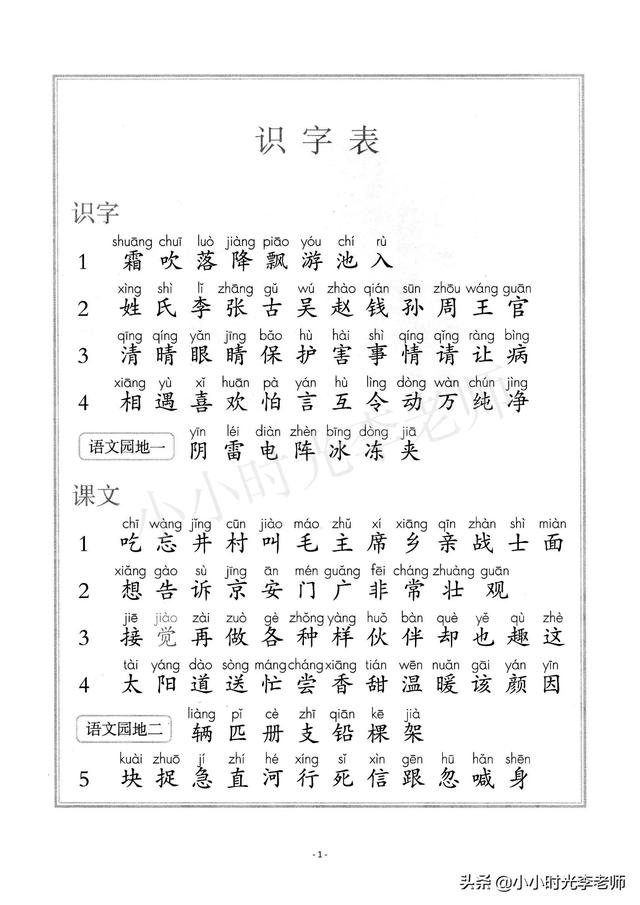 识字表
识字
shuāng chuī luò jiàng piāo yóu chí rù
1 霜 吹 落 降 飘 游 池 入
xìng shì lǐ zhāng gǔ wú zhào qián sūn zhōu wáng guān
2 姓 氏 李 张 古 吴 赵 钱 孙 周 王 官
qīng qíng yǎn jīng bǎo hù hài shì qíng qǐng ràng bìng
3 清 晴 眼 睛 保 护 害 事 情 请 让 病
xiāng yù xǐ huān pà yán hù lìng dòng wàn chún jìng
4 相 遇 喜 欢 怕 言 互 令 动 万 纯 净
yīn léi diàn zhèn bīng dòng jiā
语文园地一 阴 雷 电 阵 冰 冻 夹
课文
chī wàng jǐng cūn jiào máo zhǔ xí xiāng qīn zhàn shì miàn
1 吃 忘 井 村 叫 毛 主 席 乡 亲 战 士 面
xiǎng gào sù jīng ān mén guǎng fēi cháng zhuàng guān
2 想 告 诉 京 安 门 广 非 常 壮 观
jiē jiào zài zuò gè zhǒng yàng huǒ bàn què yě qù zhè
3 接 觉 再 做 各 种 样 伙 伴 却 也 趣 这
tài yáng dào sòng máng cháng xiāng tián wēn nuǎn gāi yán yīn
4 太 阳 道 送 忙 尝 香 甜 温 暖 该 颜 因
liàng pǐ cè zhī qiān kē jià
语文园地二 辆 匹 册 支 铅 棵 架
kuài zhuō jí zhí hé xíng sǐ xìn gēn hū hǎn shēn
5 块 捉 急 直 河 行 死 信 跟 忽 喊 身
小小时光李老师
- 1 -
头条 @小小时光李老师